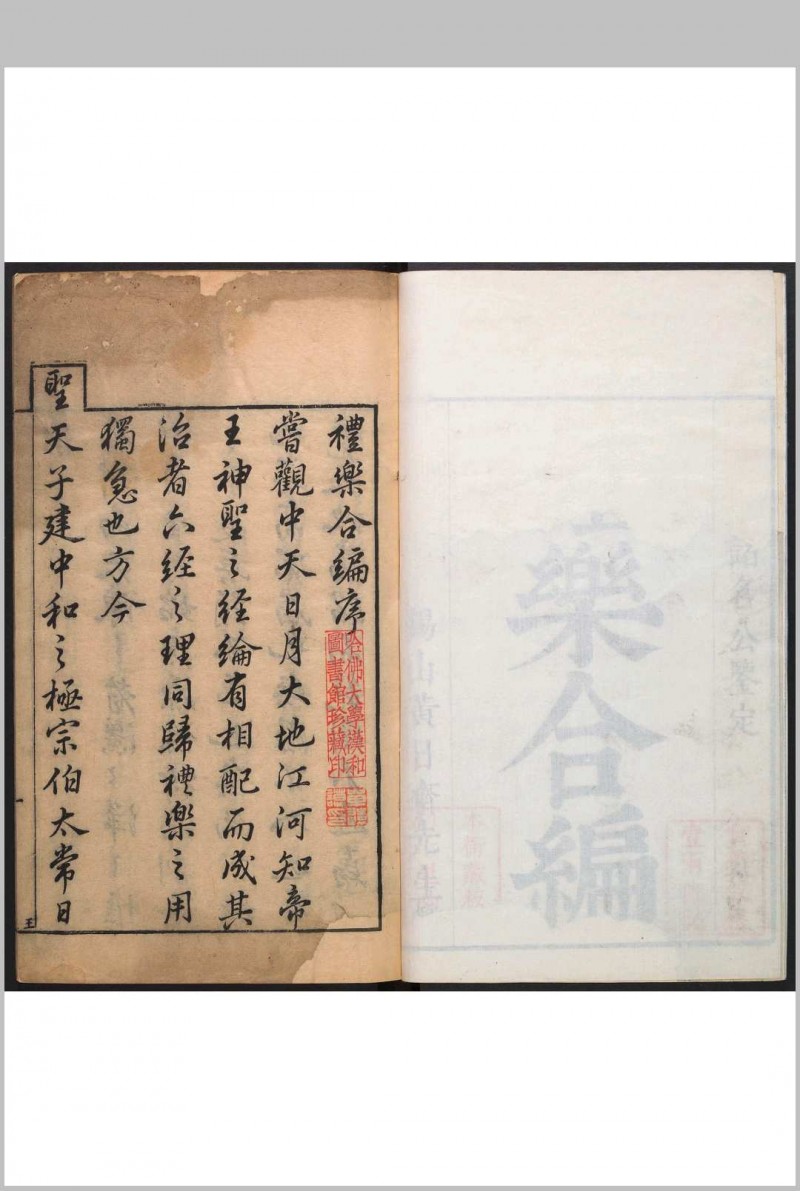 禮樂合編序
嘗觀中天日月大地江河知帝
王神聖之經綸有相配而成其
治者六經之理同歸禮樂之用
獨急也方今
聖天子建中和之極宗伯太常日
哈佛大學漢和
圖書館珍藏印
樂合編
公鑒定
山黃日
先生